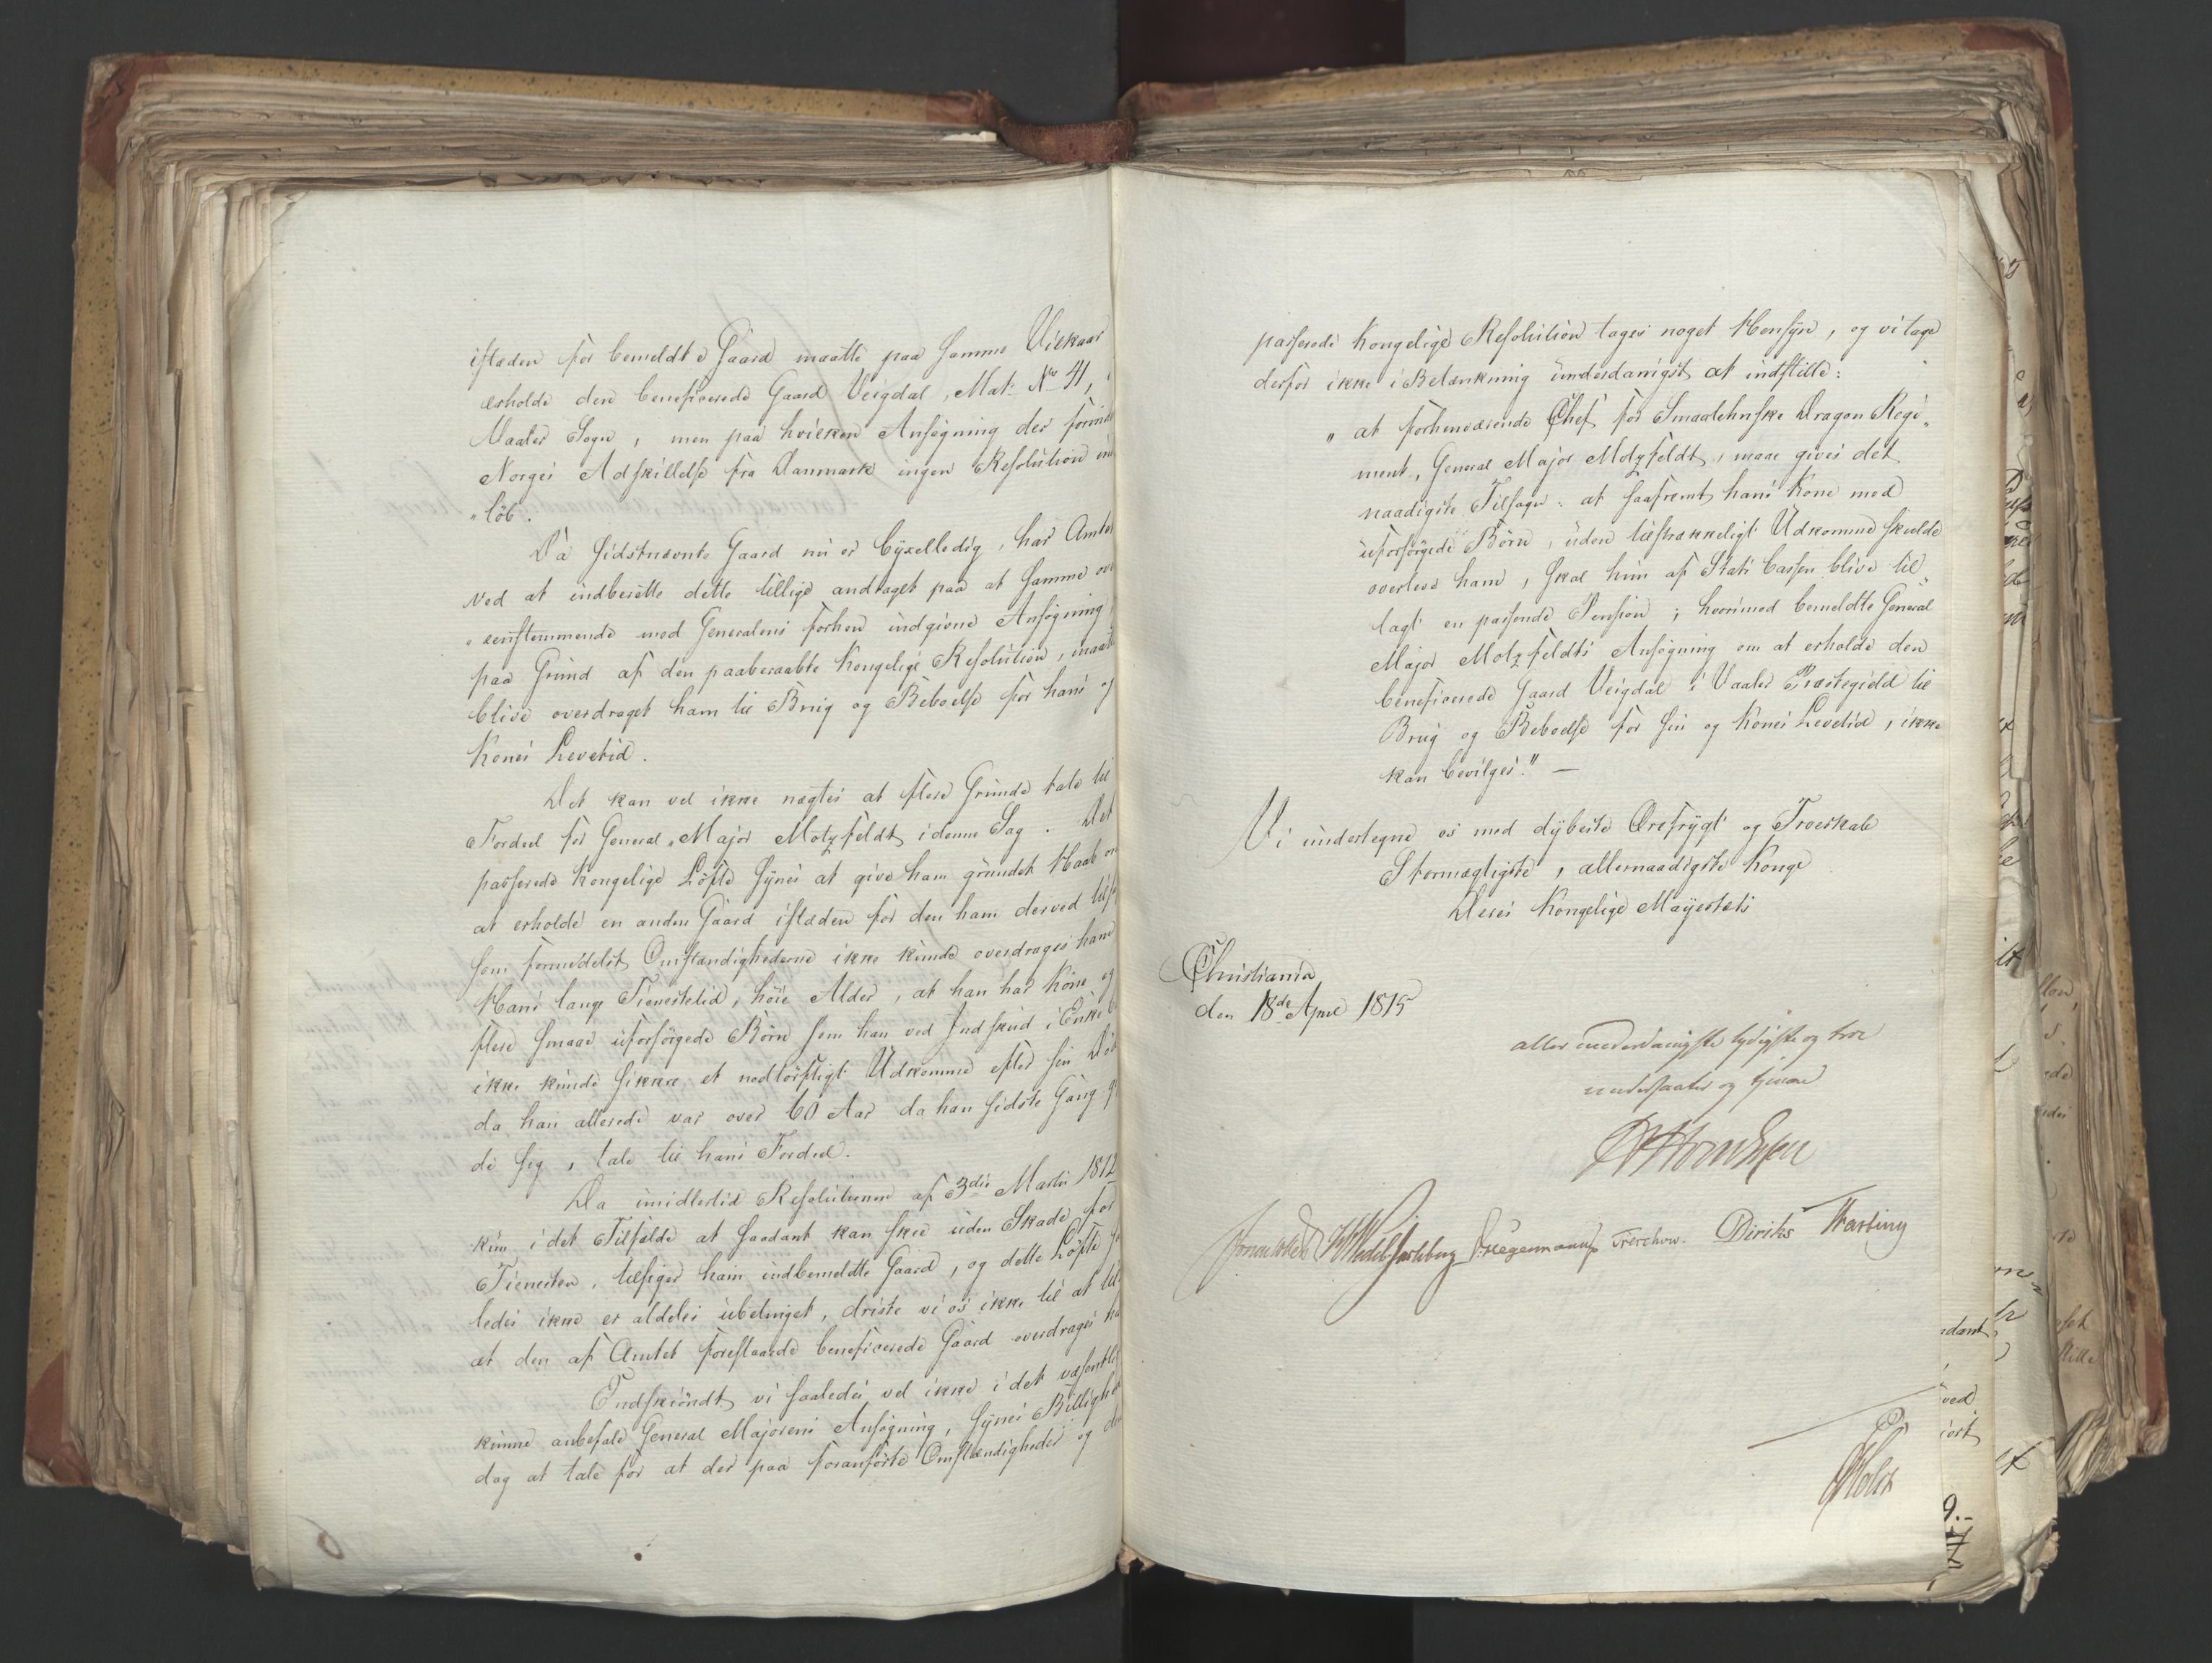 istæden for bemeldte Gaard maatte paa samme Vilkaar
erholde den beneficerede Gaard Veigdal, Mat: No 41, i
Vaaler Sogn, men paa hvilken Ansøgning der forinden
Norges Adskillelse fra Danmark ingen Resolution ind
„løb.
Da sidstnævnte Gaard nu er byxelledig, har Amtet
ved at indberette dette tillige andraget paa at samme ove
„eensstemmende med Generalens forhen indgivne Ansøgning
paa Grund af den paaberaabte Kongelige Resolution, maatte
blive overdraget ham til Brug og Beboelse for hans og
Kones Levetid.
Det kan vel ikke nægtes at flere Grunde tale til
Fordeel for General-Major Motzfeldt i denne Sag. Det
passerede Kongelige Løfte synes at give ham grundet Haab om
at erholde en anden Gaard istæden for den ham derved tils
som formedelst Omstændighederne ikke kunde overdrages ham
Hans lange Tienestetid, høie Alder, at han har Kone og
flere smaae uforsørgede Børn som han ved Indskud i Enke
ikke kunde sikkre et nødtørftigt Udkomme efter sin Død
da han allerede var over 60 Aar da han sidste Gang g
de sig, tale til hans Fordeel.
Da imidlertid Resolutionen af 3die Marts 1812
kun i det Tilfælde at saadant kan skee uden Skade for
Tienesten, tilsiger ham indbemeldte Gaard, og dette Løfte saa
ledes ikke er aldeles ubetinget, driste vi os ikke til at til
at den af Amtet foreslaaede beneficerede Gaard overdrages ha
Endskiøndt vi saaledes vel ikke i det væsentli
kunne anbefale General Majorens Ansøgning, synes Billighe
dog at tale for at der paa foranførte Omstændigheder og de
passerede Kongelige Resolution tages noget Hensyn, og vi tage
derfor ikke i Betænkning underdanigst at indstille:
„at forhenværende Chef for Smaalehnske Dragon Regi„
ment, General Major Motzfeldt, maae gives det
naadigste Tilsagn: at saafremt hans Kone med
uforsørgede Børn, uden tilstrækkeligt Udkomme skulde
overleve ham, skal hun af Stats Cassen blive til„
lagt en passende Pension; hvorimod bemeldte General
Major Motzfeldts Ansøgning om at erholde den
beneficerede Gaard Veigdal i Vaaler Præstegield til
Brug og Beboelse for sin og Kones Levetid, ikke
kan bevilges." —
Vi undertegne os med dybeste Ærefrygt og Troeskab
Stormægtigste, allernaadigste Konge
Deres Kongelige Mayestæts
Christiania
den 18de April 1815
allerunderdanigste lydigste og troe
undersaater og tjenere
Sommerhielm HWedel Jarlsberg DHegermann Treschow. Diriks Hasting
Holst